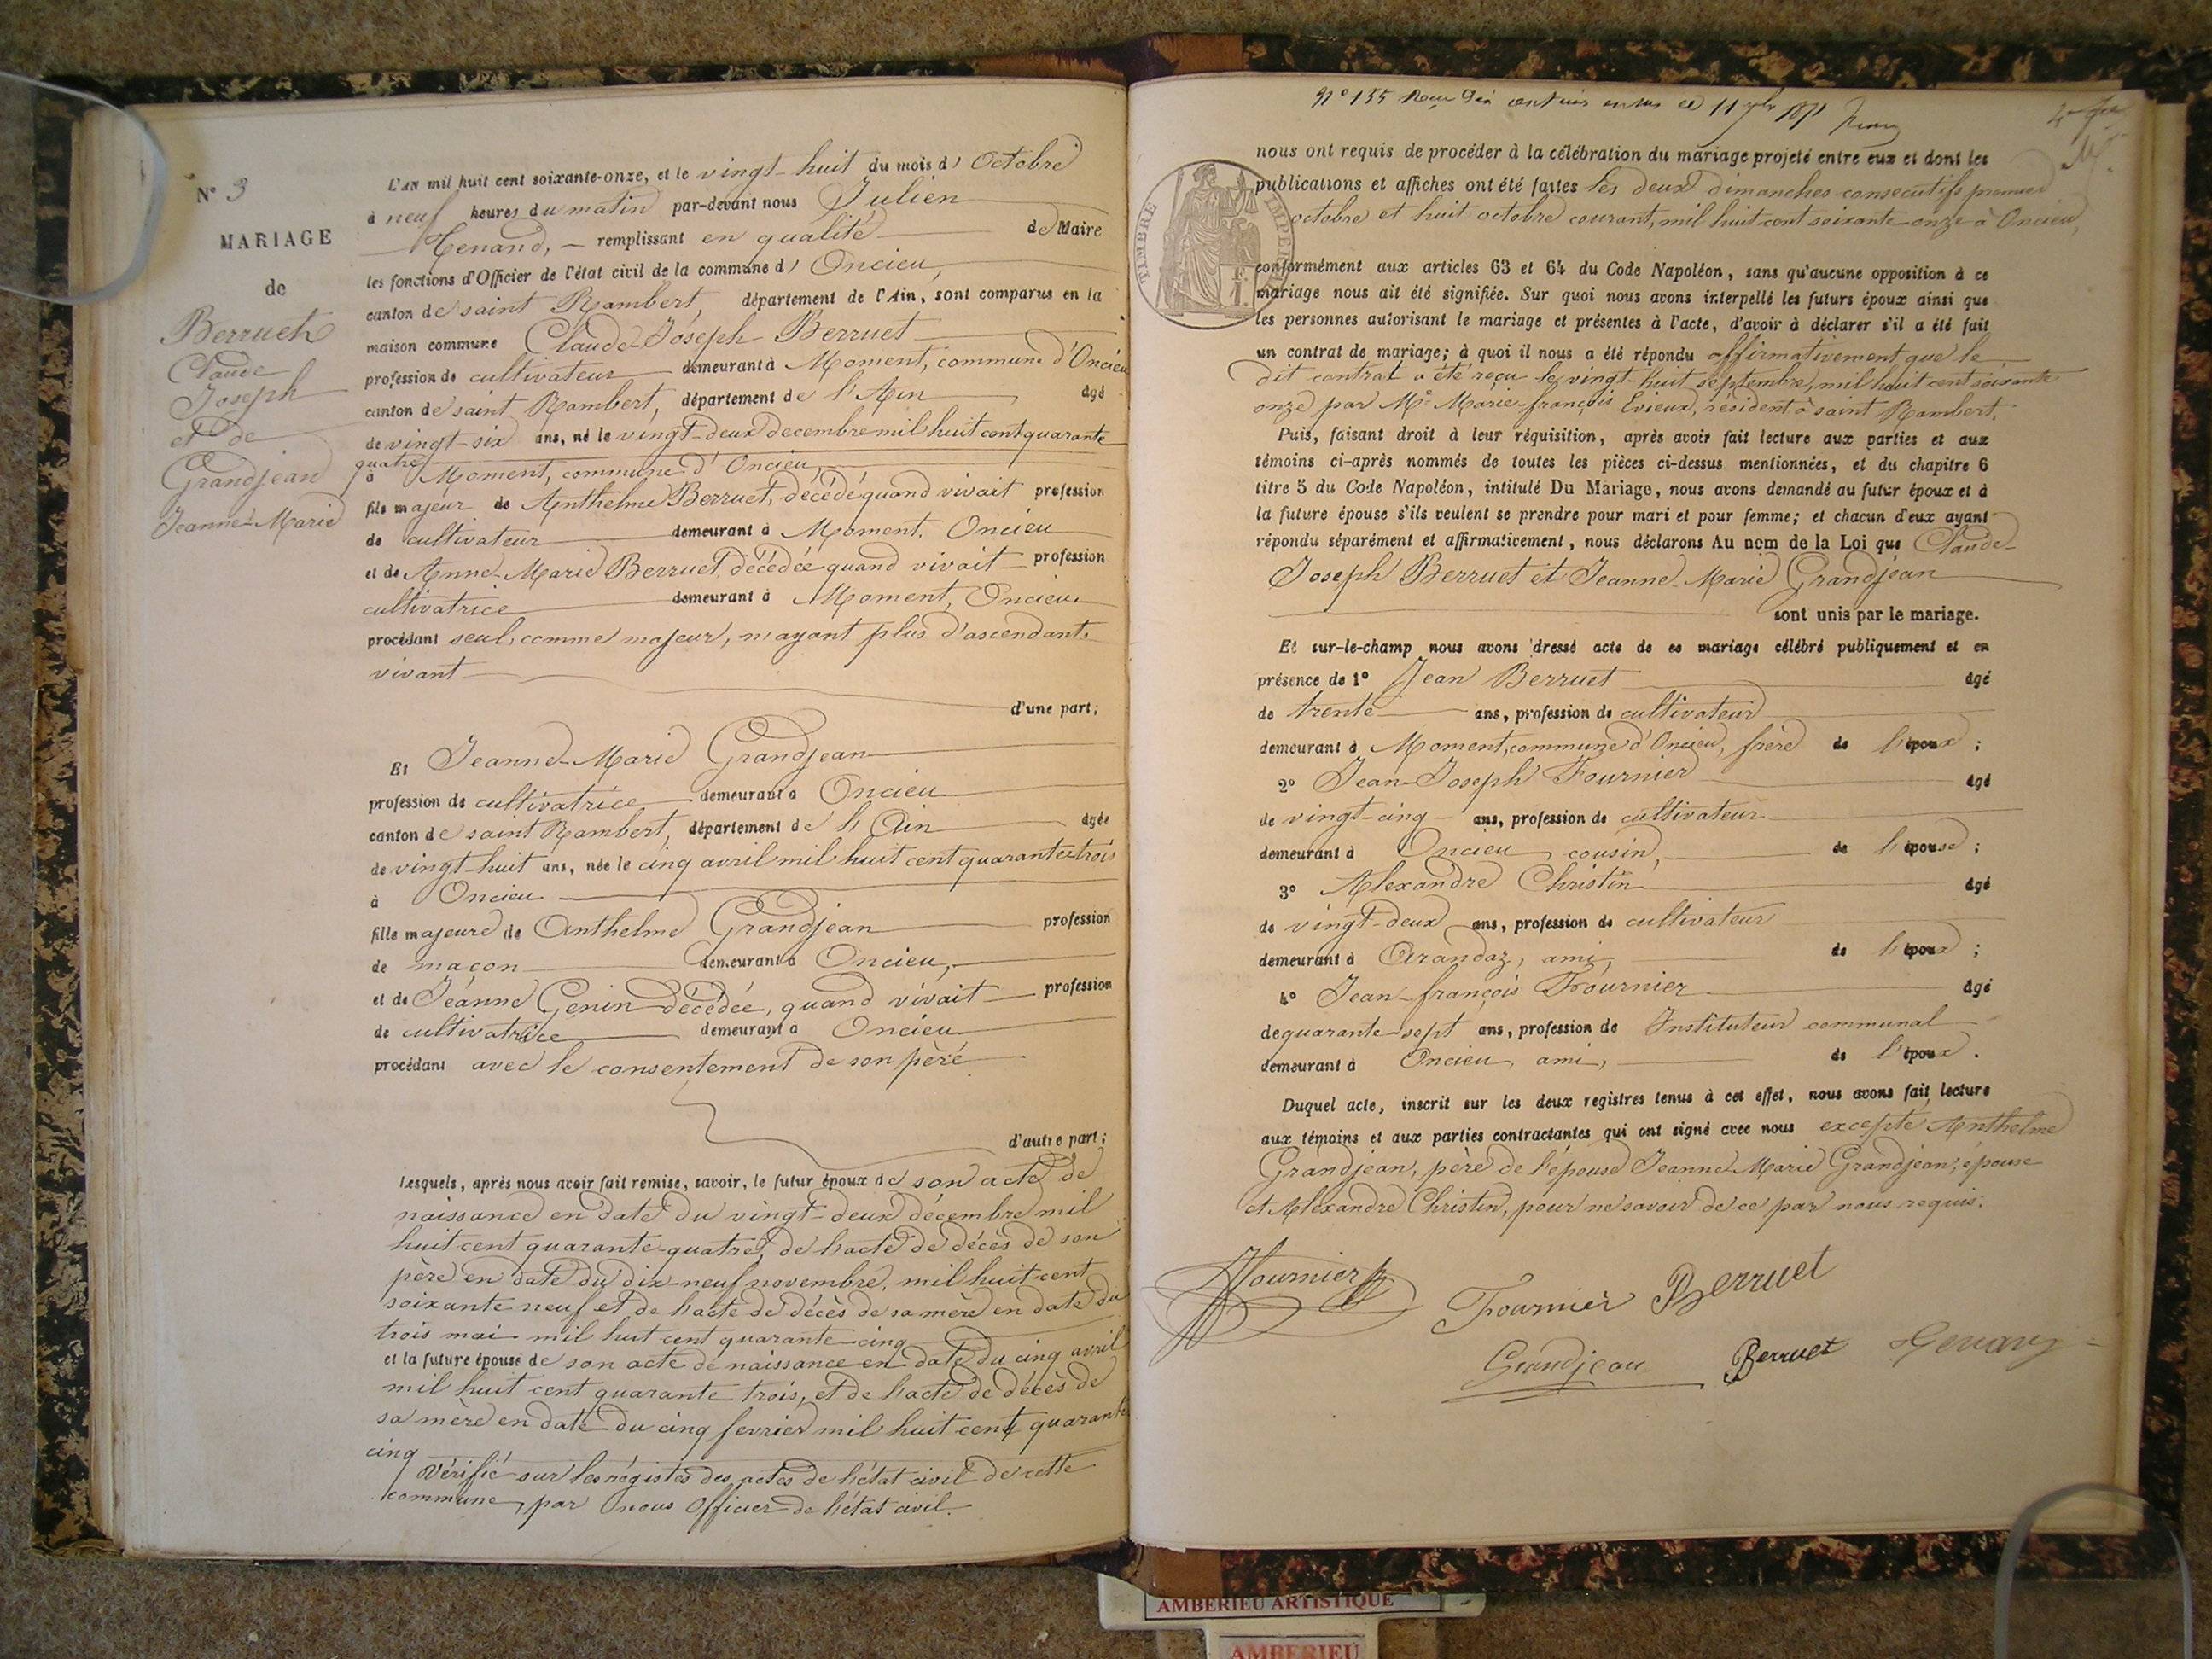 N° 3
MARIAGE
de
Berruet
Claude
Joseph
et de
Grandjean
Jeanne-Marie
L'AN mil huit cent soixante-onze, et le vingt-huit du mois d' Octobre
à neuf heures du matin par-devant nous Julien
Tenand, remplissant en qualité de Maire
les fonctions d'Officier de l'état civil de la commune d' Oncieu,
canton de saint Rambert, département de l'Ain, sont comparus en la
maison commune Claude-Joseph Berruet
profession de cultivateur demeurant à Moment, commune d'Oncieu
canton de saint Rambert, département de l'Ain âgé
de vingt-six ans, né le vingt-deux decembre mil huit cent quarante
quatre
à Moment, commune d'Oncieu,
fils majeur de Anthelme Berruet, décédé quand vivait profession
de cultivateur demeurant à Moment, Oncieu
et de Anne-Marie Berruet, décédée quand vivait profession
cultivatrice demeurant à Moment, Oncieu
procédant seul, comme majeur, n'ayant plus d'ascendants
vivant
d'une part;
Et Jeanne-Marie Grandjean
profession de cultivatrice demeurant à Oncieu
canton de saint Rambert, département de l'Ain âgée
de vingt-huit ans, née le cinq avril mil huit cent quarante-trois
à Oncieu
fille majeure de Anthelme Grandjean profession
de maçon demeurant à Oncieu,
et de Jeanne Genin décédée, quand vivait profession
de cultivatrice demeurant à Oncieu
procédant avec le consentement de son père
d'autre part;
Lesquels, après nous avoir fait remise, savoir, le futur époux de son acte de
naissance en date du vingt-deux décembre mil
huit cent quarante-quatre, de l'acte de décès de son
père en date du dix-neuf novembre, mil huit cent
soixante neuf et de l'acte de décès de sa mère en date du
trois mai mil huit cent quarante-cinq
et la future épouse de son acte de naissance en date du cinq avril
mil huit cent quarante trois, et de l'acte de décès de
sa mère en date du cinq fevrier mil huit cent quarante
cinq
Vérifié sur les régistes des actes de l'état civil de cette
commune, par nous Officier de l'état civil.
N° 155 11
TIMBRE IMPÉRIAL
nous ont requis de procéder à la célébration du mariage projeté entre eux et dont les
publications et affiches ont été faites les deux dimanches consecutifs premier
octobre et huit octobre courant, mil huit cent soixante-onze à Oncieu,
conformément aux articles 63 et 64 du Code Napoléon, sans qu'aucune opposition à ce
mariage nous ait été signifiée. Sur quoi nous avons interpellé les futurs époux ainsi que
les personnes autorisant le mariage et présentes à l'acte, d'avoir à déclarer s'il a été fait
un contrat de mariage; à quoi il nous a été répondu affirmativement que le
dit contrat a été reçu le vingt-huit septembre, mil huit cent soixante
onze par Me Marie-françois Evieux, résident à saint Rambert.
Puis, faisant droit à leur réquisition, après avoir fait lecture aux parties et aux
témoins ci-après nommés de toutes les pièces ci-dessus mentionnées, et du chapitre 6
titre 5 du Code Napoléon, intitulé Du Mariage, nous avons demandé au futur époux et à
la future épouse s'ils veulent se prendre pour mari et pour femme; et chacun d'eux ayant
répondu séparément et affirmativement, nous déclarons Au nom de la Loi que Claude-
Joseph Berruet et Jeanne-Marie Grandjean
sont unis par le mariage.
Et sur-le-champ nous avons dressé acte de ce mariage célébré publiquement et en
présence de 1° Jean Berruet âgé
de trente ans, profession de cultivateur
demeurant à Moment, commune d'Oncieu, frère de l'époux;
2° Jean-Joseph Fournier âgé
de vingt-cinq ans, profession de cultivateur
demeurant à Oncieu, cousin, de l'épouse;
3° Alexandre Christin âgé
de vingt-deux ans, profession de cultivateur
demeurant à Arandaz, ami, de l'époux;
4° Jean-françois Fournier âgé
de quarante-sept ans, profession de Instituteur communal
demeurant à Oncieu, ami, de l'époux.
Duquel acte, inscrit sur les deux registres tenus à cet effet, nous avons fait lecture
aux témoins et aux parties contractantes qui ont signé avec nous excepté Anthelme
Grandjean, père de l'épouse Jeanne-Marie Grandjean, épouse
et Alexandre Christin, pour ne savoir de ce par nous requis.
Fournier
Fournier Berruet
Grandjean Berruet Tenand
AMBERIEU ARTISTIQUE
AMBERIEU